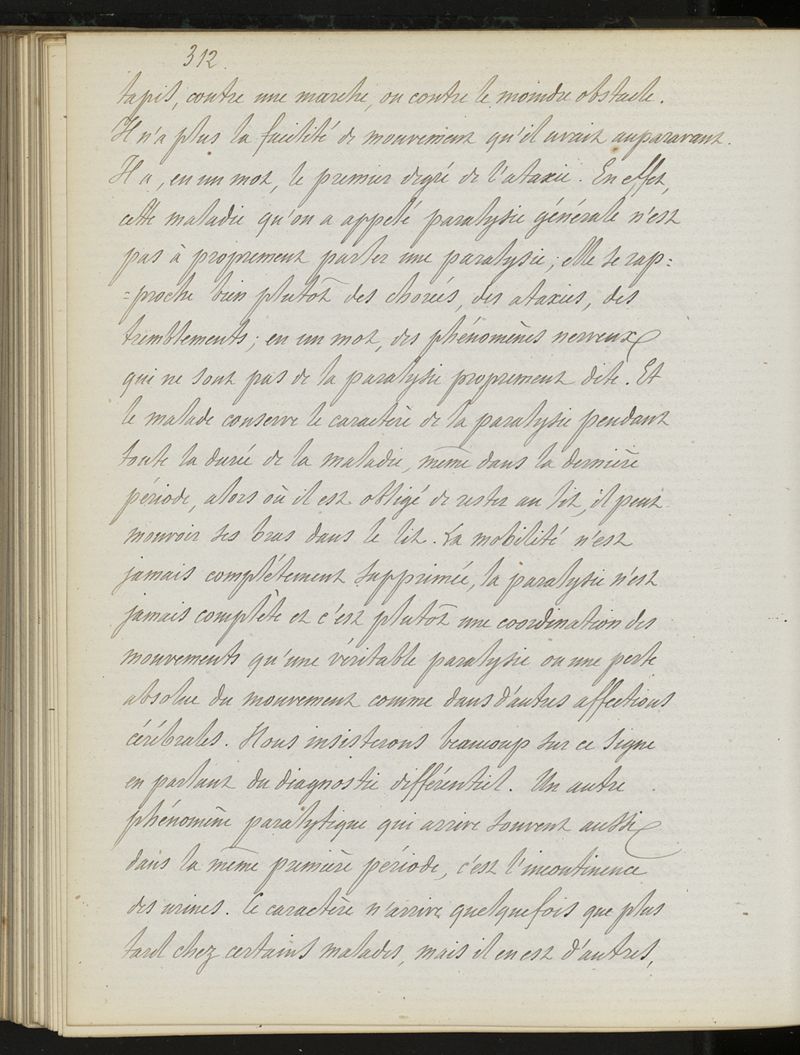 312.
tapis, contre une marche, ou contre le moindre obstacle.
Il n'a plus la facilité de mouvement qu'il avait auparavant.
Il a, en un mot, le premier degré de l'ataxie. En effet,
cette maladie qu'on a appelé paralysie générale n'est
pas à proprement parler une paralysie; elle se rap=
=proche bien plutôt des chorées, des ataxies, des
tremblements; en un mot, des phénomènes nerveux
qui ne sont pas de la paralysie proprement dite. Et
le malade conserve le caractère de la paralysie pendant
toute la durée de la maladie, même dans la dernière
période, alors où il est obligé de rester au lit, il peut
mouvoir ses bras dans le lit. La mobilité n'est
jamais complètement supprimée, la paralysie n'est
jamais complète et c'est plutôt une coordination des
mouvements qu'une véritable paralysie ou une perte
absolue du mouvement comme dans d'autres affections
cérébrales. Nous insisterons beaucoup sur ce signe
en parlant du diagnostic différentiel. Un autre
phénomène paralytique qui arrive souvent aussi
dans la même première période, c'est l'incontinence
des urines. Ce caractère n'arrive quelquefois que plus
tard chez certains malades, mais il en est d'autres,